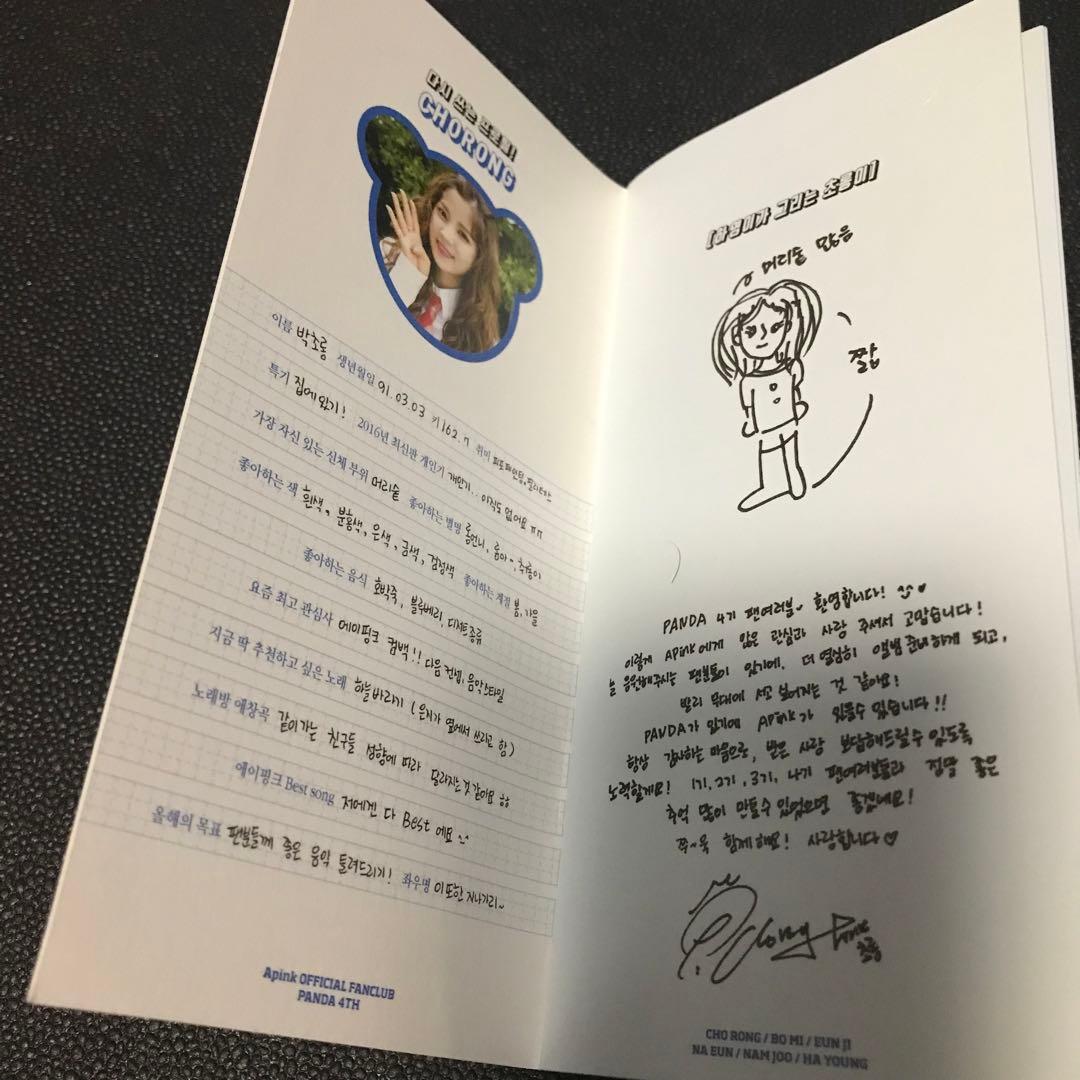 다시 쓰는 프로필!
CHORONG
이름 박초롱 생년월일 91.03.03 키 162.7 취미
특기 집에있기! 2016년 최신판 개인기 개인기.. 아직도 없어요 ㅠㅠ
가장 자신 있는 신체 부위 머리숱 좋아하는 별명 롱언니, 롱아~, 추롱이
좋아하는 색 흰색, 분홍색, 은색, 금색, 검정색 좋아하는 계절 봄, 가을
좋아하는 음식 호박죽, 블루베리, 디저트종류
요즘 최고 관심사 에이핑크 컴백!! 다음 컨셉, 음악스타일
지금 딱 추천하고 싶은 노래 하늘바라기 (은지가 옆에서 쓰라고 함)
노래방 애창곡 같이가는 친구들 성향에 따라 달라지는것 같아요 ㅎㅎ
에이핑크 Best song 저에겐 다 Best 예요
올해의 목표 팬분들께 좋은 음악 들려드리기! 좌우명 이또한 지나가리~
Apink OFFICIAL FANCLUB
PANDA 4TH
[하영이가 그리는 초롱이]
머리숱 많음
짧
PANDA 4기 팬여러분~ 환영합니다! ♥
이렇게 Apink에게 많은 관심과 사랑 주셔서 고맙습니다!
늘 응원해주시는 팬분들이 있기에, 더 열심히 앨범준비하게 되고,
빨리 무대에 서고 싶어지는 것 같아요!
PANDA가 있기에 APink가 있을수 있습니다!!
항상 감사하는 마음으로, 받은 사랑 보답해드릴수 있도록
노력할게요! 1기, 2기, 3기, 4기 팬여러분들과 정말 좋은
추억 많이 만들수 있었으면 좋겠네요!
쭈~욱 함께해요! 사랑합니다♡
초롱
CHO RONG / BO MI / EUN JI
NA EUN / NAM JOO / HA YOUNG